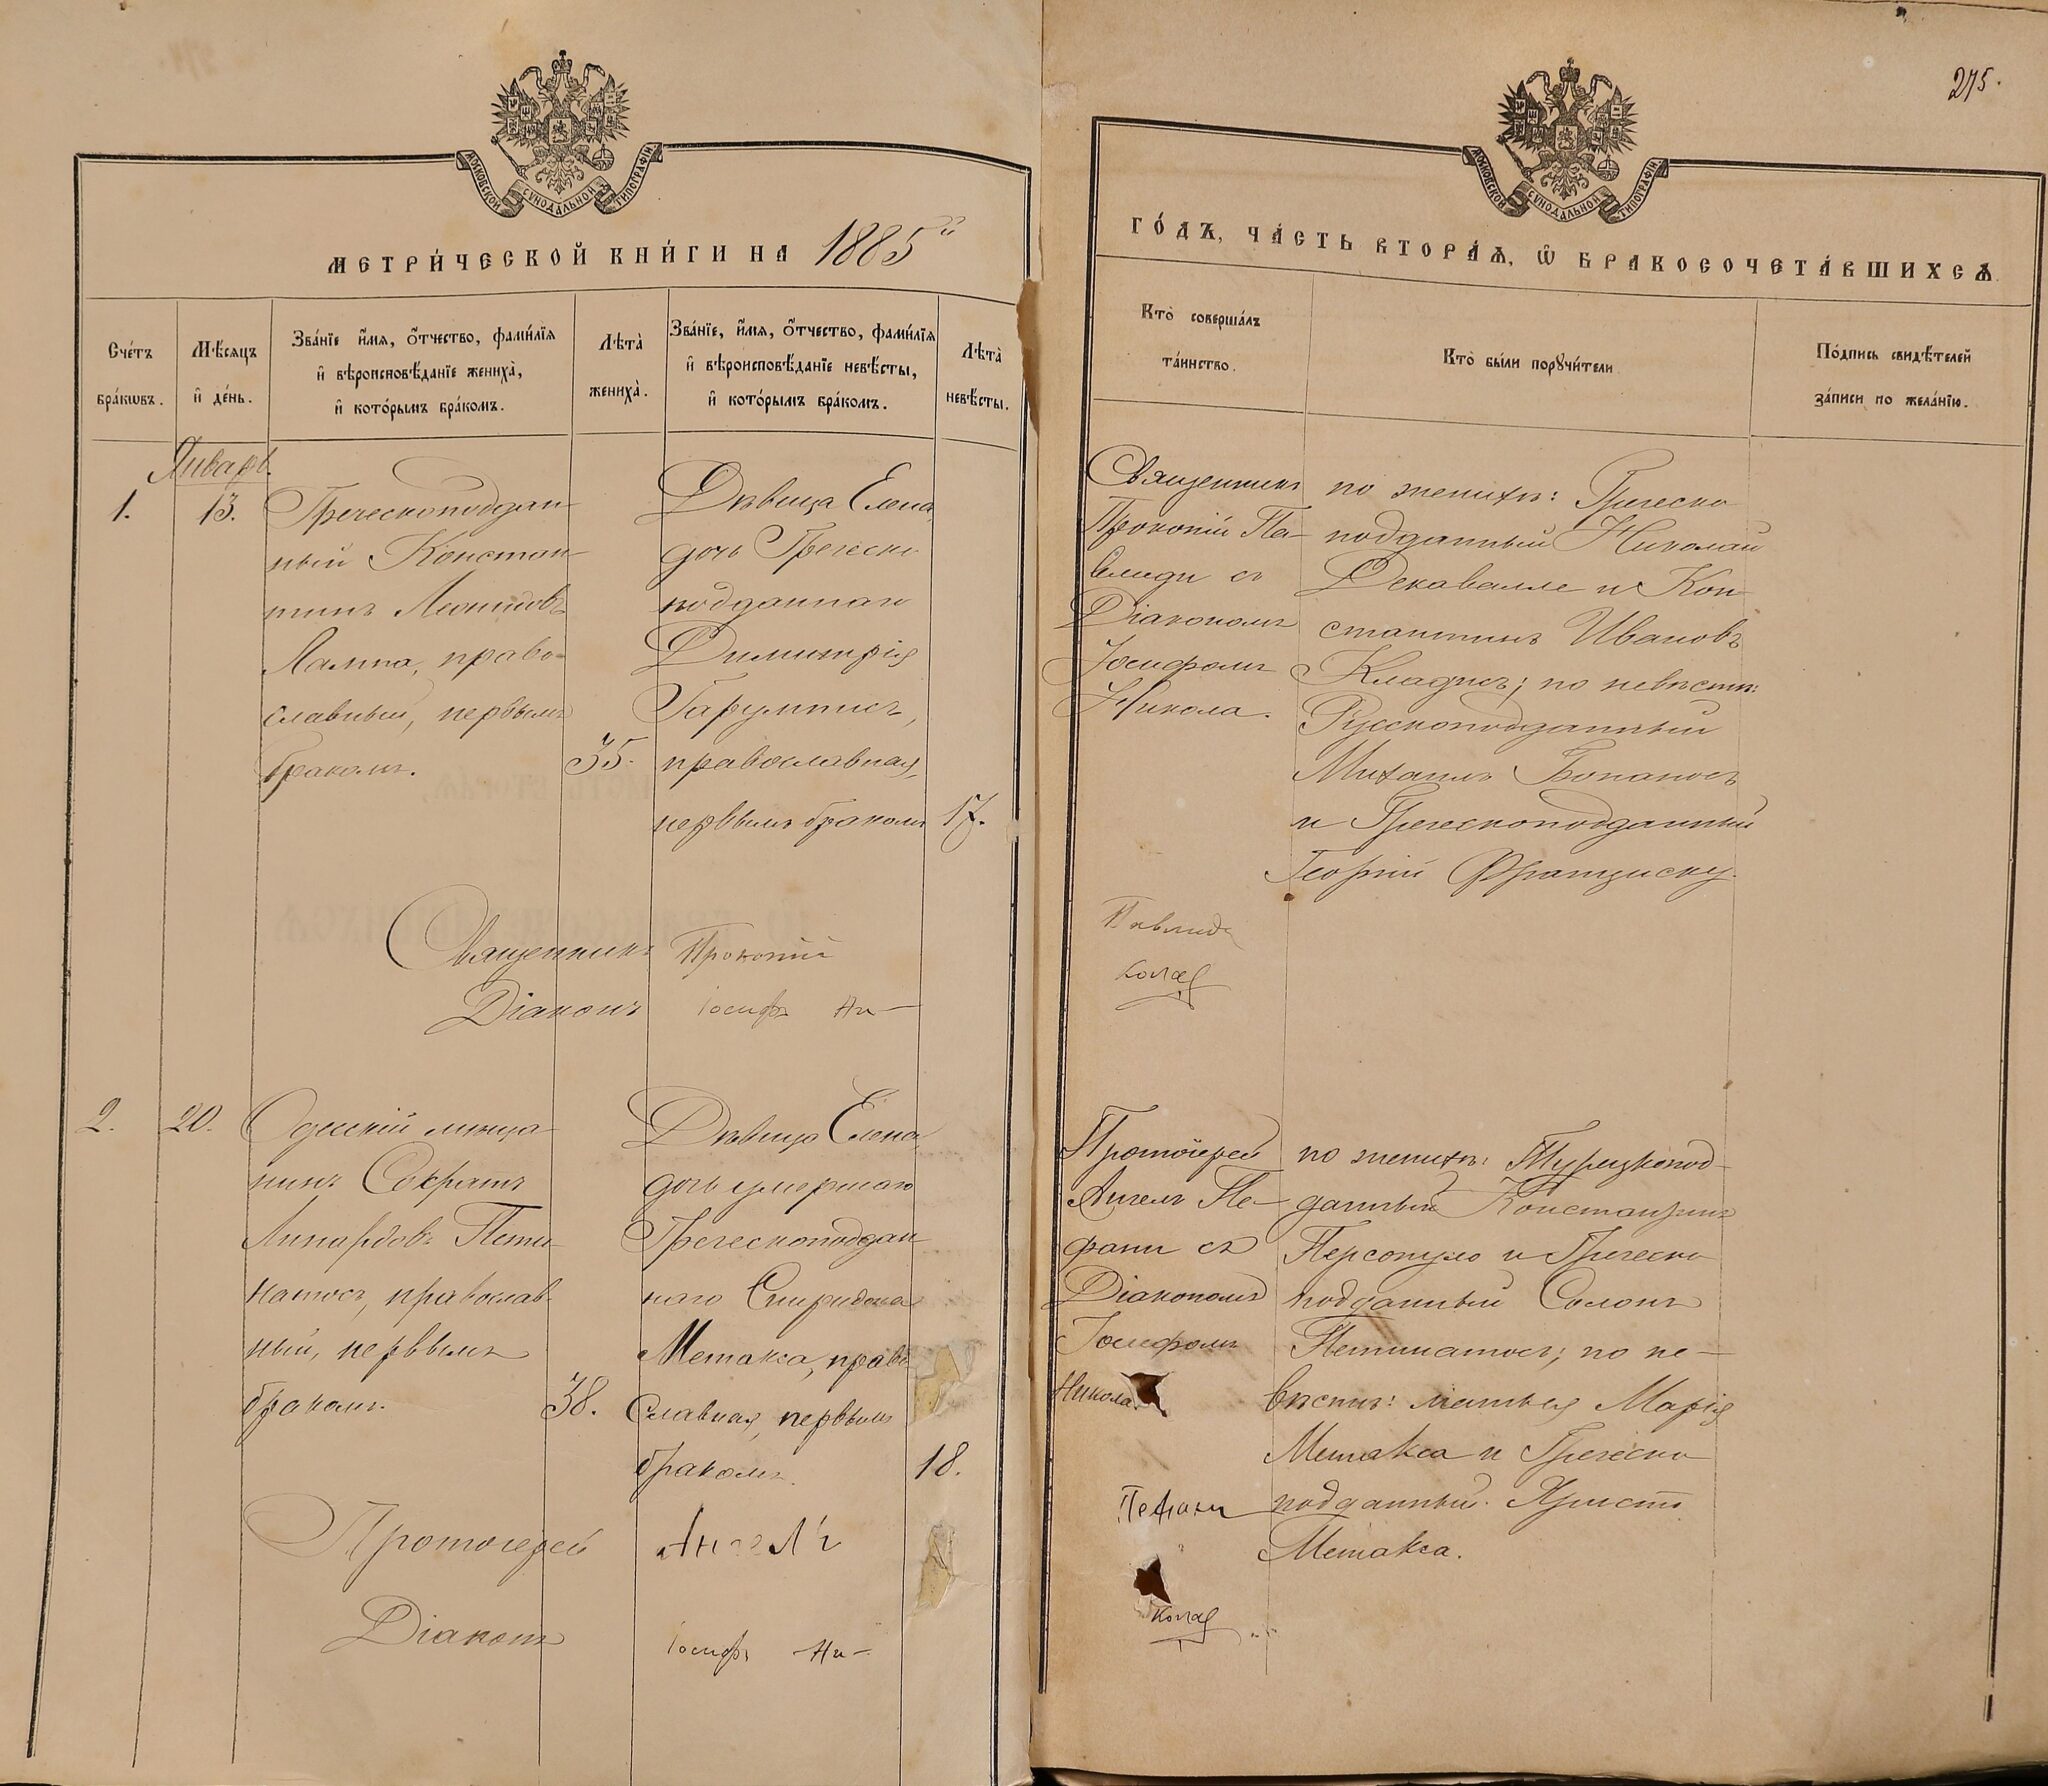 275.
МОСКОВСКОЙ СУНОДАЛЬНОЙ ТИПОГРАФІИ
МОСКОВСКОЙ СУНОДАЛЬНОЙ ТИПОГРАФІИ
МЕТРИ́ЧЕСКОЙ КНИ́ГИ НА 1885й
ГО́ДЪ, ЧА́СТЬ ВТОРА́Ѧ, Ѽ БРАКОСОЧЕТА́ВШИХСѦ.
Сче́тъ
бра́кѡвъ.
Мѣ́сяцъ
и҆ де́нь.
Зва́нїе и҆́мя, ѻ҆́тчество, фами́лїя
и҆ вѣроисповѣ́данїе жениха̀,
и҆ кото́рымъ бра́комъ.
Лѣта̀
жениха̀.
Зва́нїе, и҆́мя, ѻ҆́тчество, фами́лїя
и҆ вѣроисповѣ́данїе невѣ́сты,
и҆ кото́рымъ бра́комъ.
Лѣта̀
невѣ́сты.
Кто̀ соверша́лъ
та́инство.
Кто̀ бы́ли порꙋчи́тели.
По́дпись свидѣ́телей
за́писи по жела́нїю.
Январь.
1.
13.
Греческоподдан-
ный Констан-
тинъ Леонидовъ
Лампа, право-
славный, первымъ
бракомъ.
35.
Дѣвица Елена,
дочь Греческо
подданнаго
Димитрія
православная,
первымъ бракомъ
17.
Священникъ
Прокопій Па-
влиди съ
Діакономъ
Іосифомъ
Никола.
по женихѣ: Греческо
подданный Николай
Декавалле и Кон-
стантинъ Ивановъ
Кладисъ; по невѣстѣ:
Русскоподданный
Михаилъ
и Греческоподданный
Георгій
Священникъ Прокопій Павлиди
Діаконъ Іосифъ Ни- кола
2.
20.
Одесскій мѣща-
нинъ Сократъ
Линардовъ Пети-
натосъ, православ-
ный, первымъ
бракомъ.
38.
Дѣвица Елена,
дочь умершаго
Греческоподдан
наго Спиридона
Метакса, право
славная, первымъ
бракомъ.
18.
Протоіерей
Ангелъ Пе-
фани съ
Діакономъ
Іосифомъ
Никола.
по женихѣ: Турецкопод-
данный Константинъ
Персопуло и Греческо
подданный Солонъ
Петинатосъ; по не-
вѣстѣ: мать ея Марія
Метакса и Греческо
подданный. Христо
Метакса.
Протоіерей Ангелъ Пефани
Діаконъ Іосифъ Ни- кола